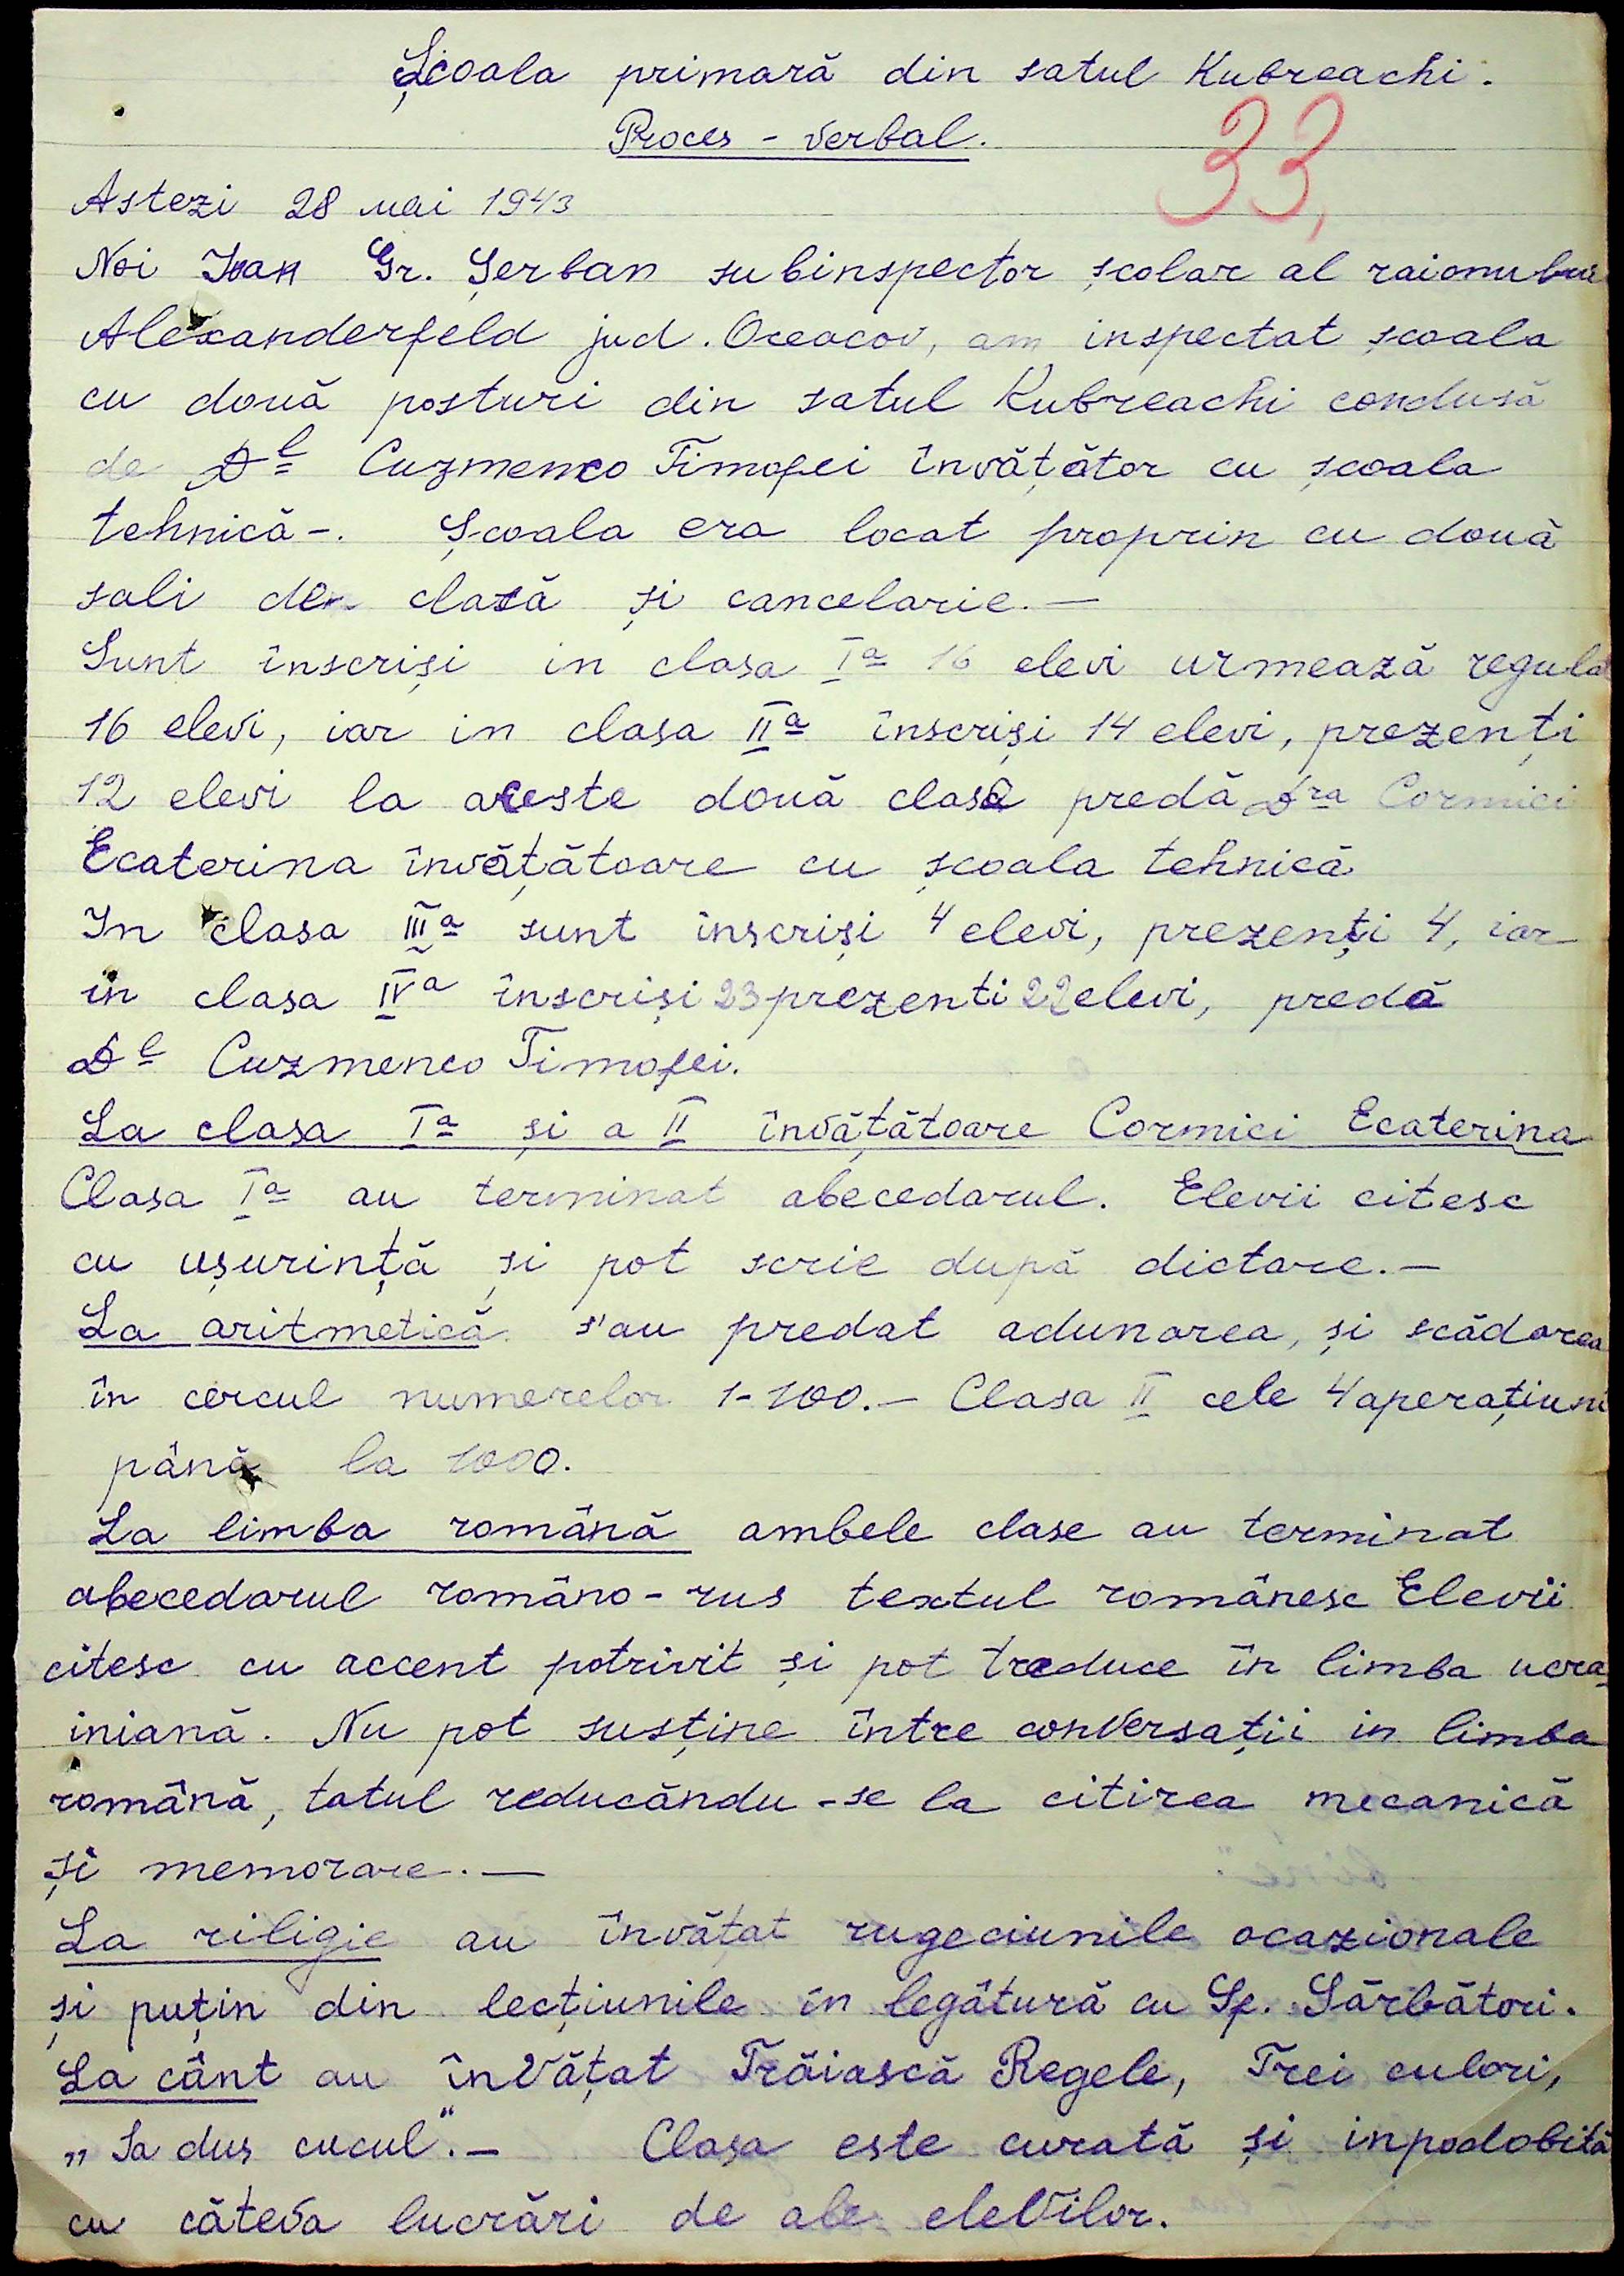 Școala primară din satul Kubreachi.
Proces - verbal.
33,
Astezi 28 mai 1943
Noi Ioan Gr. Șerban subinspector școlar al raionului
Alexanderfeld jud. Oceacov, am inspectat școala
cu două posturi din satul Kubreachi condusă
de Dl Cuzmenco Timofei învățător cu școala
tehnică-. Școala era locat proprin cu două
sali de clasă și cancelarie.—
Sunt înscriși in clasa Ia 16 elevi urmează regulat
16 elevi, iar in clasa IIa înscriși 14 elevi, prezenți
12 elevi la aceste două clase predă Dra Cormici
Ecaterina învățătoare cu școala tehnică
In clasa IIIa sunt inscriși 4 elevi, prezenți 4, iar
in clasa IVa înscriși 23 prezenti 22 elevi, predă
Dl Cuzmenco Timofei.
La clasa Ia și a II învățătoare Cormici Ecaterina
Clasa Ia au terminat abecedarul. Elevii citesc
cu ușurință și pot scrie după dictare.—
La aritmetică s'au predat adunarea, și scădarea
în cercul numerelor 1-100.— Clasa II cele 4 aperațiuni
până la 1000.
La limba română ambele clase au terminat
abecedarul româno-rus textul românesc Elevii
citesc cu accent potrivit și pot traduce în limba ucra
iniană. Nu pot susține între conversații in limba
română, totul reducându-se la citirea mecanică
și memorare.—
La riligie au învățat rugeciunile ocazionale
și puțin din lecțiunile in legătură cu Sf. Sărbători.
La cânt au învățat Trăiască Regele, Trei culori,
„Sa dus cucul".— Clasa este curată și inpodobită
cu câteva lucrări de ale elevilor.